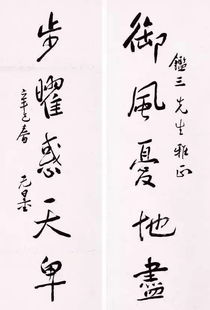 御風憂地盡
鑑三先生雅正
步曜惑天卑
辛巳春
元曇